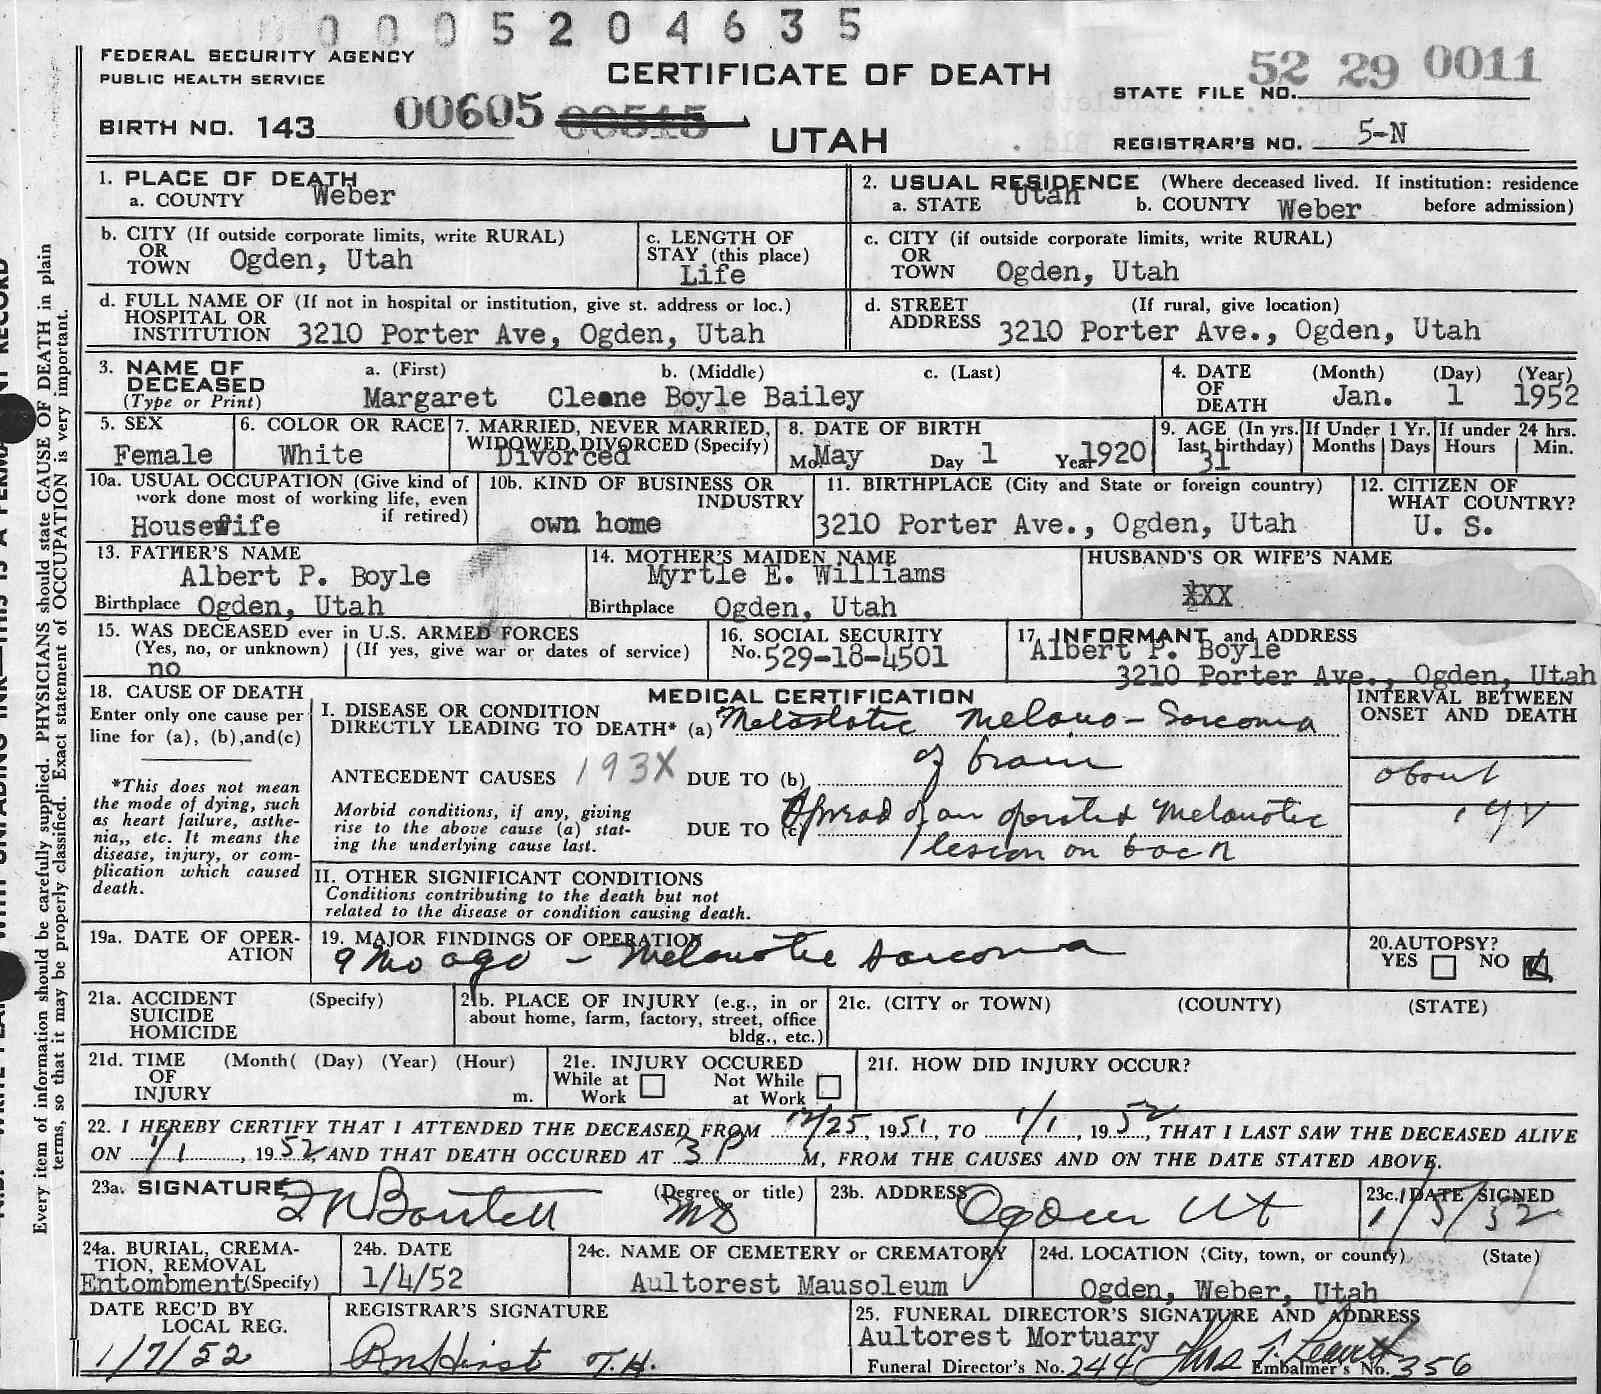 0005204635
FEDERAL SECURITY AGENCY
PUBLIC HEALTH SERVICE
CERTIFICATE OF DEATH
STATE FILE NO. 52 29 0011
BIRTH NO. 143 00605 00515
UTAH
REGISTRAR'S NO. 5-N
1. PLACE OF DEATH
a. COUNTY Weber
2. USUAL RESIDENCE (Where deceased lived. If institution: residence before admission)
a. STATE Utah b. COUNTY Weber
b. CITY (If outside corporate limits, write RURAL)
OR
TOWN Ogden, Utah
c. LENGTH OF
STAY (this place)
Life
c. CITY (if outside corporate limits, write RURAL)
OR
TOWN Ogden, Utah
d. FULL NAME OF (If not in hospital or institution, give st. address or loc.)
HOSPITAL OR
INSTITUTION 3210 Porter Ave, Ogden, Utah
d. STREET (If rural, give location)
ADDRESS 3210 Porter Ave., Ogden, Utah
3. NAME OF
DECEASED
(Type or Print)
a. (First) b. (Middle) c. (Last)
Margaret Cleone Boyle Bailey
4. DATE
OF
DEATH
(Month) (Day) (Year)
Jan. 1 1952
5. SEX
Female
6. COLOR OR RACE
White
7. MARRIED, NEVER MARRIED,
WIDOWED, DIVORCED (Specify)
Divorced
8. DATE OF BIRTH
Mo May Day 1 Year 1920
9. AGE (In yrs.
last birthday)
31
If Under 1 Yr.
Months Days
If under 24 hrs.
Hours Min.
10a. USUAL OCCUPATION (Give kind of
work done most of working life, even
if retired)
Housewife
10b. KIND OF BUSINESS OR
INDUSTRY
own home
11. BIRTHPLACE (City and State or foreign country)
3210 Porter Ave., Ogden, Utah
12. CITIZEN OF
WHAT COUNTRY?
U. S.
13. FATHER'S NAME
Albert P. Boyle
Birthplace Ogden, Utah
14. MOTHER'S MAIDEN NAME
Myrtle E. Williams
Birthplace Ogden, Utah
HUSBAND'S OR WIFE'S NAME
XXX
15. WAS DECEASED ever in U.S. ARMED FORCES
(Yes, no, or unknown) (If yes, give war or dates of service)
no
16. SOCIAL SECURITY
No. 529-18-4501
17. INFORMANT and ADDRESS
Albert P. Boyle
3210 Porter Ave., Ogden, Utah
18. CAUSE OF DEATH
Enter only one cause per
line for (a), (b), and (c)
*This does not mean
the mode of dying, such
as heart failure, asthe-
nia,, etc. It means the
disease, injury, or com-
plication which caused
death.
MEDICAL CERTIFICATION
I. DISEASE OR CONDITION
DIRECTLY LEADING TO DEATH* (a) Metastatic Melano-Sarcoma
of brain
ANTECEDENT CAUSES 193X DUE TO (b)
Morbid conditions, if any, giving
rise to the above cause (a) stat-
ing the underlying cause last.
DUE TO (c) Spread of an operated Melanotic
lesion on back
INTERVAL BETWEEN
ONSET AND DEATH
about
1 yr
II. OTHER SIGNIFICANT CONDITIONS
Conditions contributing to the death but not
related to the disease or condition causing death.
19a. DATE OF OPER-
ATION
19. MAJOR FINDINGS OF OPERATION
9 Mo ago - Melanotic sarcoma
20. AUTOPSY?
YES NO
21a. ACCIDENT
SUICIDE
HOMICIDE
(Specify)
21b. PLACE OF INJURY (e.g., in or
about home, farm, factory, street, office
bldg., etc.)
21c. (CITY or TOWN) (COUNTY) (STATE)
21d. TIME
OF
INJURY
(Month( (Day) (Year) (Hour)
m.
21e. INJURY OCCURED
While at
Work
Not While
at Work
21f. HOW DID INJURY OCCUR?
22. I HEREBY CERTIFY THAT I ATTENDED THE DECEASED FROM 12/25, 1951, TO 1/1, 1952, THAT I LAST SAW THE DECEASED ALIVE
ON 1/1, 1952, AND THAT DEATH OCCURED AT 3 P M, FROM THE CAUSES AND ON THE DATE STATED ABOVE.
23a. SIGNATURE
(Degree or title)
MD
23b. ADDRESS
Ogden Ut
23c. DATE SIGNED
1/5/52
24a. BURIAL, CREMA-
TION, REMOVAL
Entombment (Specify)
24b. DATE
1/4/52
24c. NAME OF CEMETERY or CREMATORY
Aultorest Mausoleum
24d. LOCATION (City, town, or county) (State)
Ogden, Weber, Utah
DATE REC'D BY
LOCAL REG.
1/7/52
REGISTRAR'S SIGNATURE
25. FUNERAL DIRECTOR'S SIGNATURE AND ADDRESS
Aultorest Mortuary
Funeral Director's No. 244 Embalmer's No. 356
Every item of information should be carefully supplied. PHYSICIANS should state CAUSE OF DEATH in plain
terms, so that it may be properly classified. Exact statement of OCCUPATION is very important.